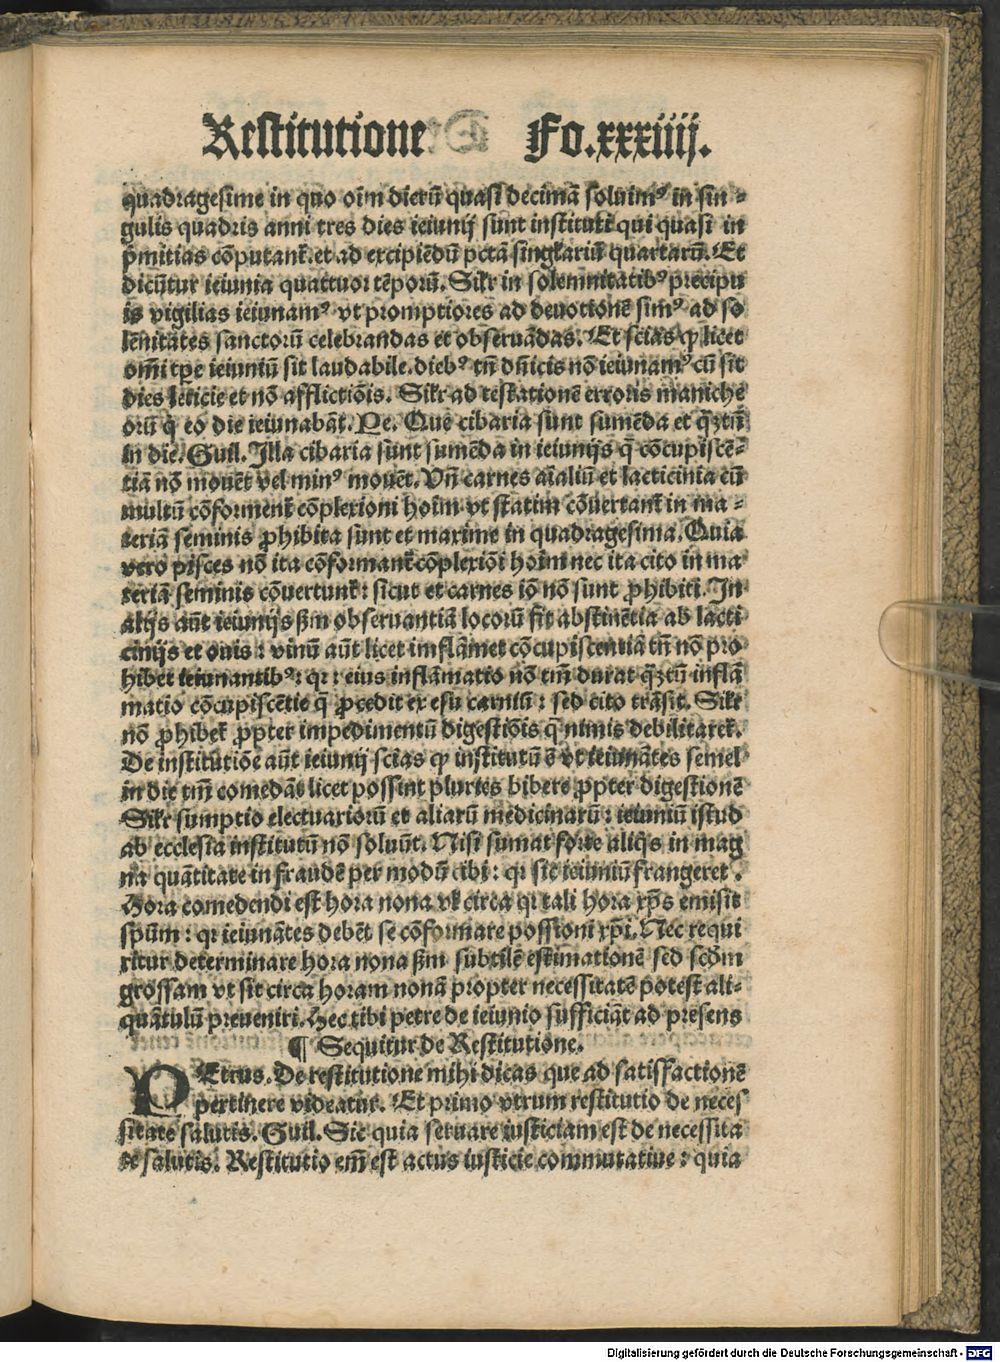 Restitutione Fo.xxxiiij.
quadragesime in quo oīm dierū quasi decimā soluimꝰ in sin⸗
gulis quadris anni tres dies ieiunij sunt instituti qui quasi in
p̄mitias cōputant̄.et ad excipiēdū pctā singłariū quartarū. Et
dicūtur ieiunia quattuor tēporū. Silr in solemnitatibꝰ precipu
is vigilias ieiunamꝰ vt promptiores ad deuotionē simꝰ ad so
lēnitates sanctorū celebrandas et obseruādas. Et scias ꝙ licet
om̄i tꝑe ieiuniū sit laudabile.diebꝰ tn̄ dn̄icis nō ieiunamꝰ cū sit
dies leticie et nō afflictiōis. Silr ad testationē erroris maniche
orū q̄ eo die ieiunabāt. Pe. Que cibaria sunt sumēda et q̄ztū
in die. Guil. Illa cibaria sunt sumēda in ieiunijs q̄ cōcupiscē⸗
tiā nō mouēt vel minꝰ mouēt. Vn̄ carnes aīaliū et lacticinia cū
multū cōforment̄ cōplexioni hoīm vt statim cōuertant̄ in ma⸗
teriā seminis ꝓhibita sunt et maxime in quadragesima. Quia
vero pisces nō ita cōformant̄ cōplexiōi hoīm nec ita cito in ma
teriā seminis cōuertunt̄: sicut et carnes iō nō sunt ꝓhibiti. In
alijs aūt ieiunijs ẜm obseruantiā locorū fit abstinētia ab lacti
cinijs et ouis: vinū aūt licet inflāmet cōcupiscentiā tn̄ nō pro
hibet ieiunantibꝰ: qr: eius inflāmatio nō tm̄ durat q̄ztū inflā
matio cōcupiscētie q̄ ꝓcedit ex esu carniū: sed cito trāsit. Silr
nō ꝓhibet̄ ꝓpter impedimentū digestiōis q̄ nimis debilitaret̄.
De institutiōe aūt ieiunij scias ꝙ institutū ē vt ieiunātes semel
in die tm̄ comedāt licet possint pluries bibere ꝓpter digestionē
Silr sumptio electuariorū et aliarū medicinarū: ieiuniū istud
ab ecclesia institutū nō soluūt. Nisi sumat forte aliq̄s in mag
na quātitate in fraudē per modū cibi: qr sic ieiuniū frangeret.
Hora comedendi est hora nona vł circa qr tali hora xp̄s emisit
sp̄um: qr ieiunātes debēt se cōformare passioni xp̄i. Nec requi
ritur determinare hora nona ẜm subtilē estimationē sed scd̄m
grossam vt sit circa horam nonā propter necessitatē potest ali⸗
quātulū preueniri. Hec tibi petre de ieiunio sufficiāt ad presens
¶ Sequitur de Restitutione.
PEtrus. De restitutione mihi dicas que ad satisfactionē
pertinere videatur. Et primo vtrum restitutio de neces
sitate salutis. Guil. Sic quia seruare iusticiam est de necessita
te salutis. Restitutio em̄ est actus iusticie commutatiue: quia
Digitalisierung gefördert durch die Deutsche Forschungsgemeinschaft - DFG